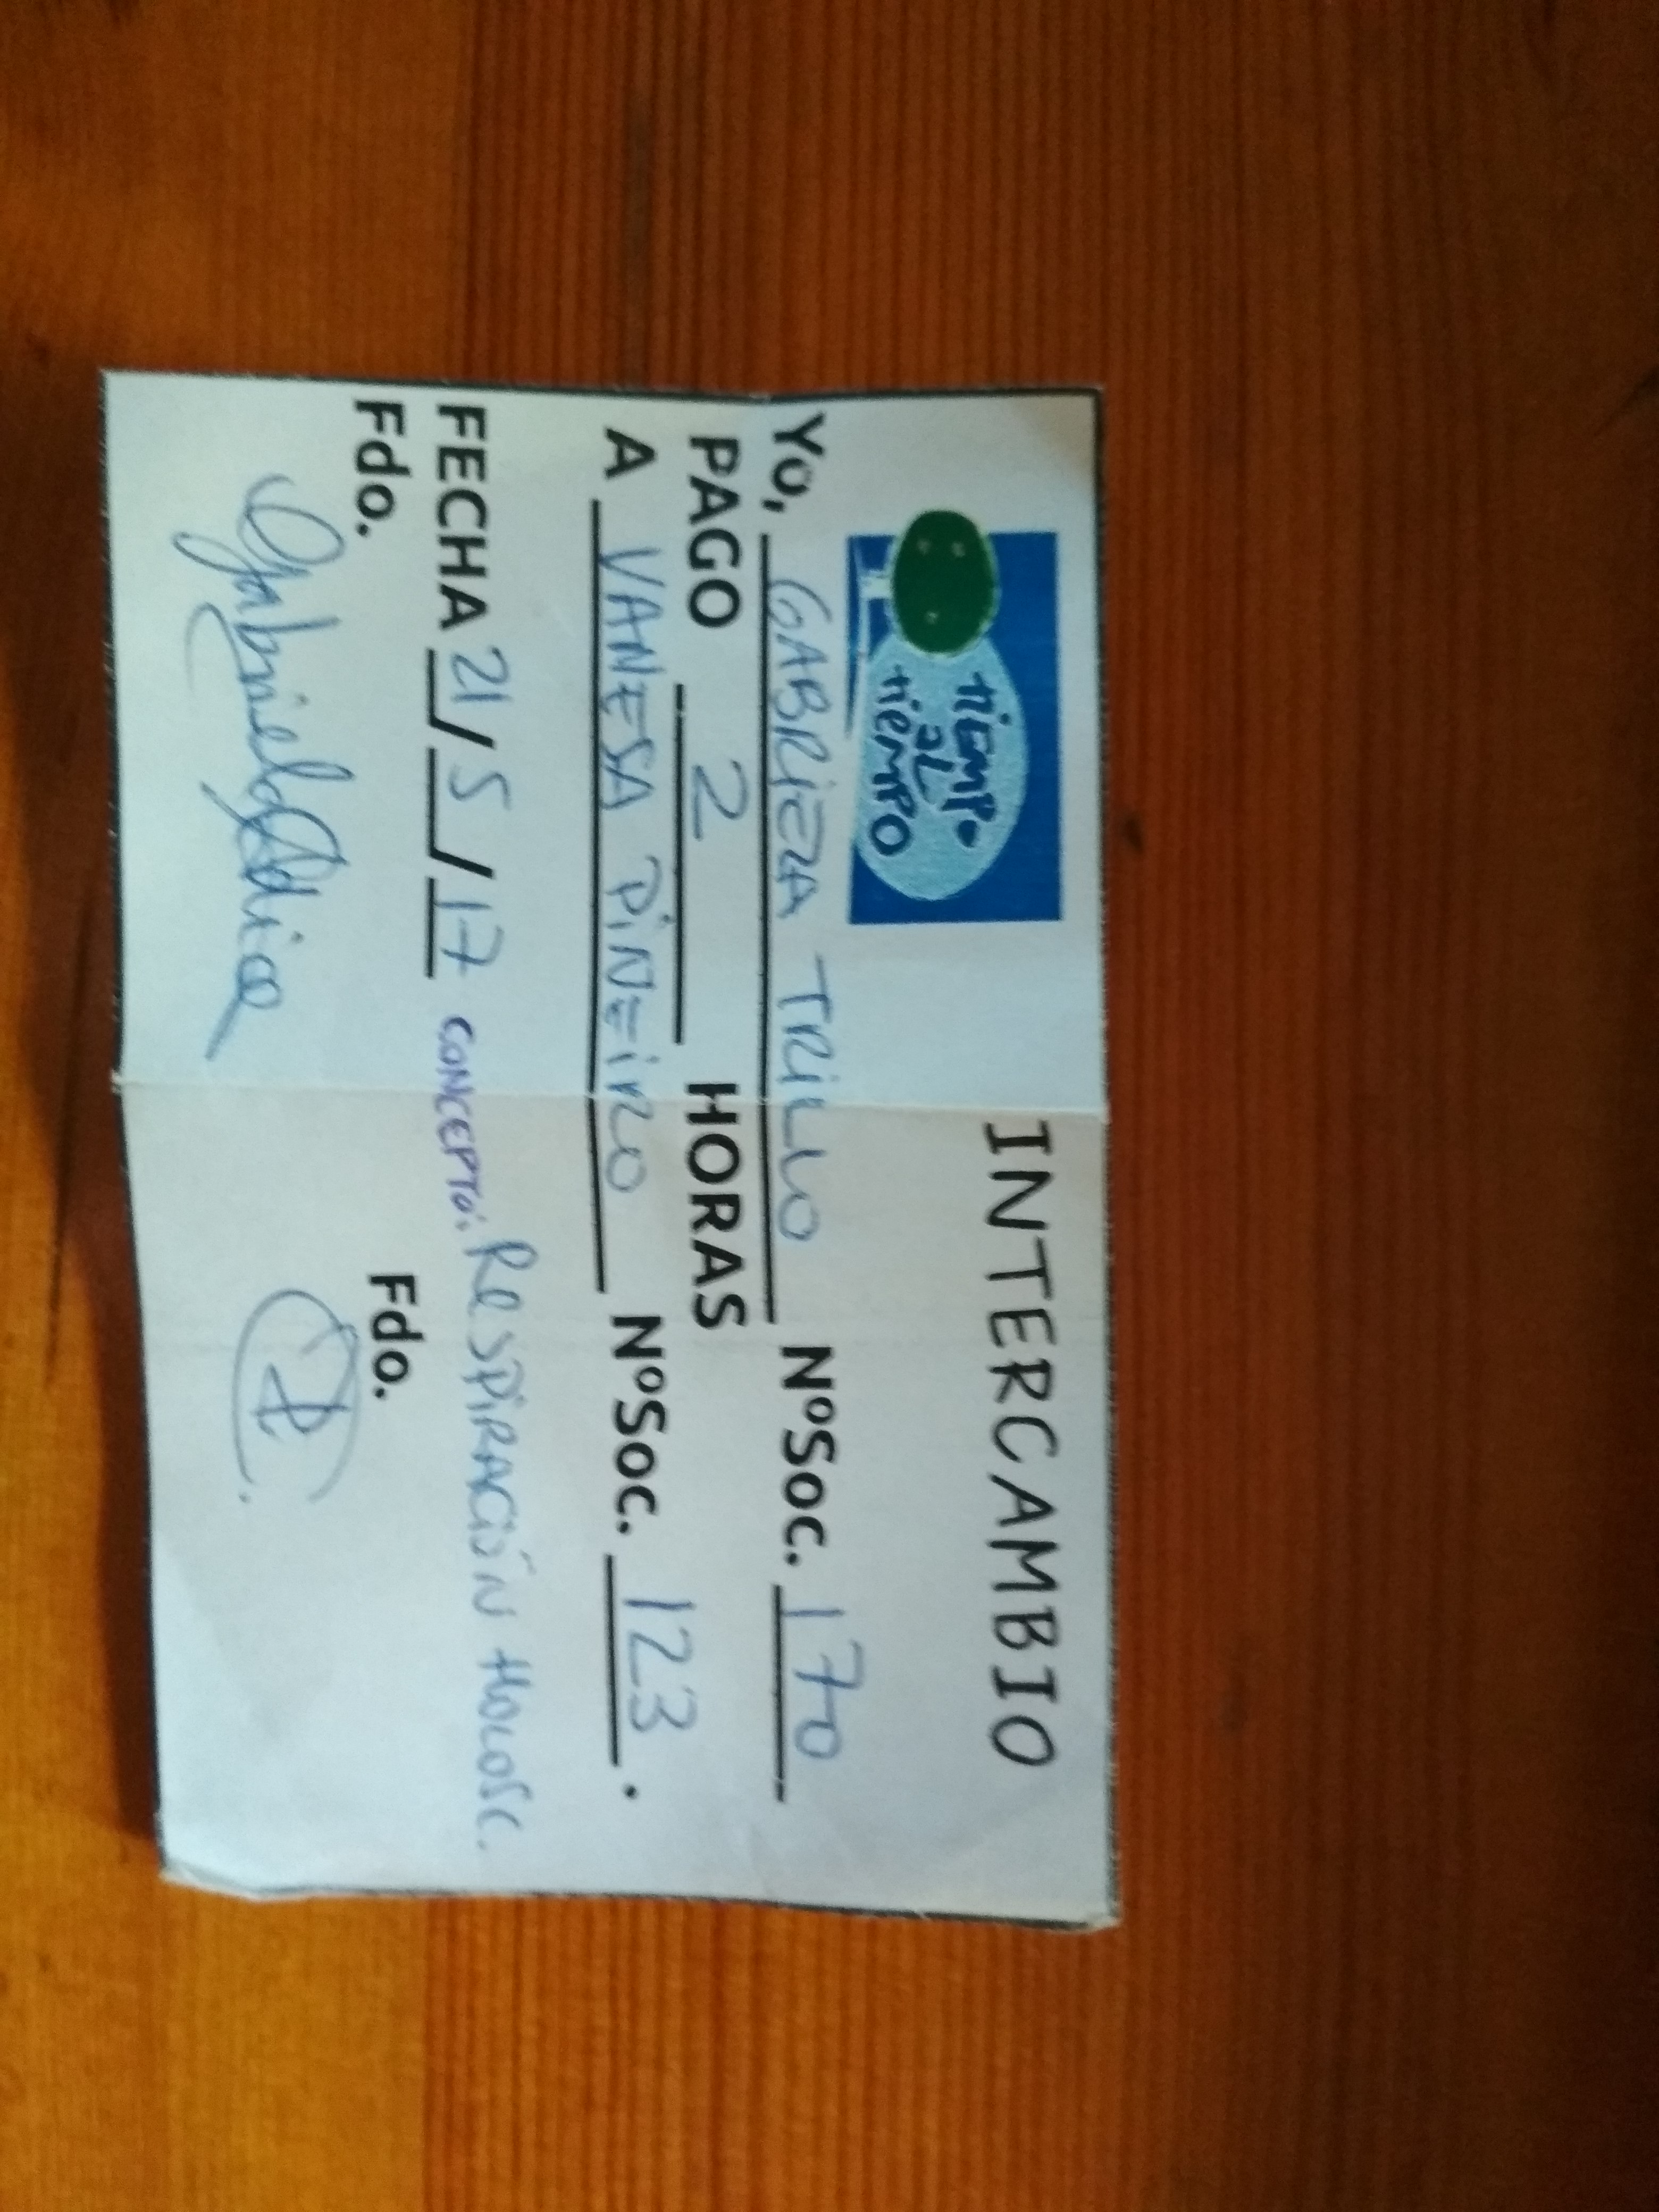 INTERCAMBIO
tiEMPo
aL
tieMPO
Yo, GABRIELA TRILLO NºSoc. 170
PAGO 2 HORAS
A VANESA PIÑEIRO NºSoc. 123.
FECHA 21/5/17 CONCEPTO: RESPIRACIÓN HOLOSC.
Fdo. Fdo.
Gabriela